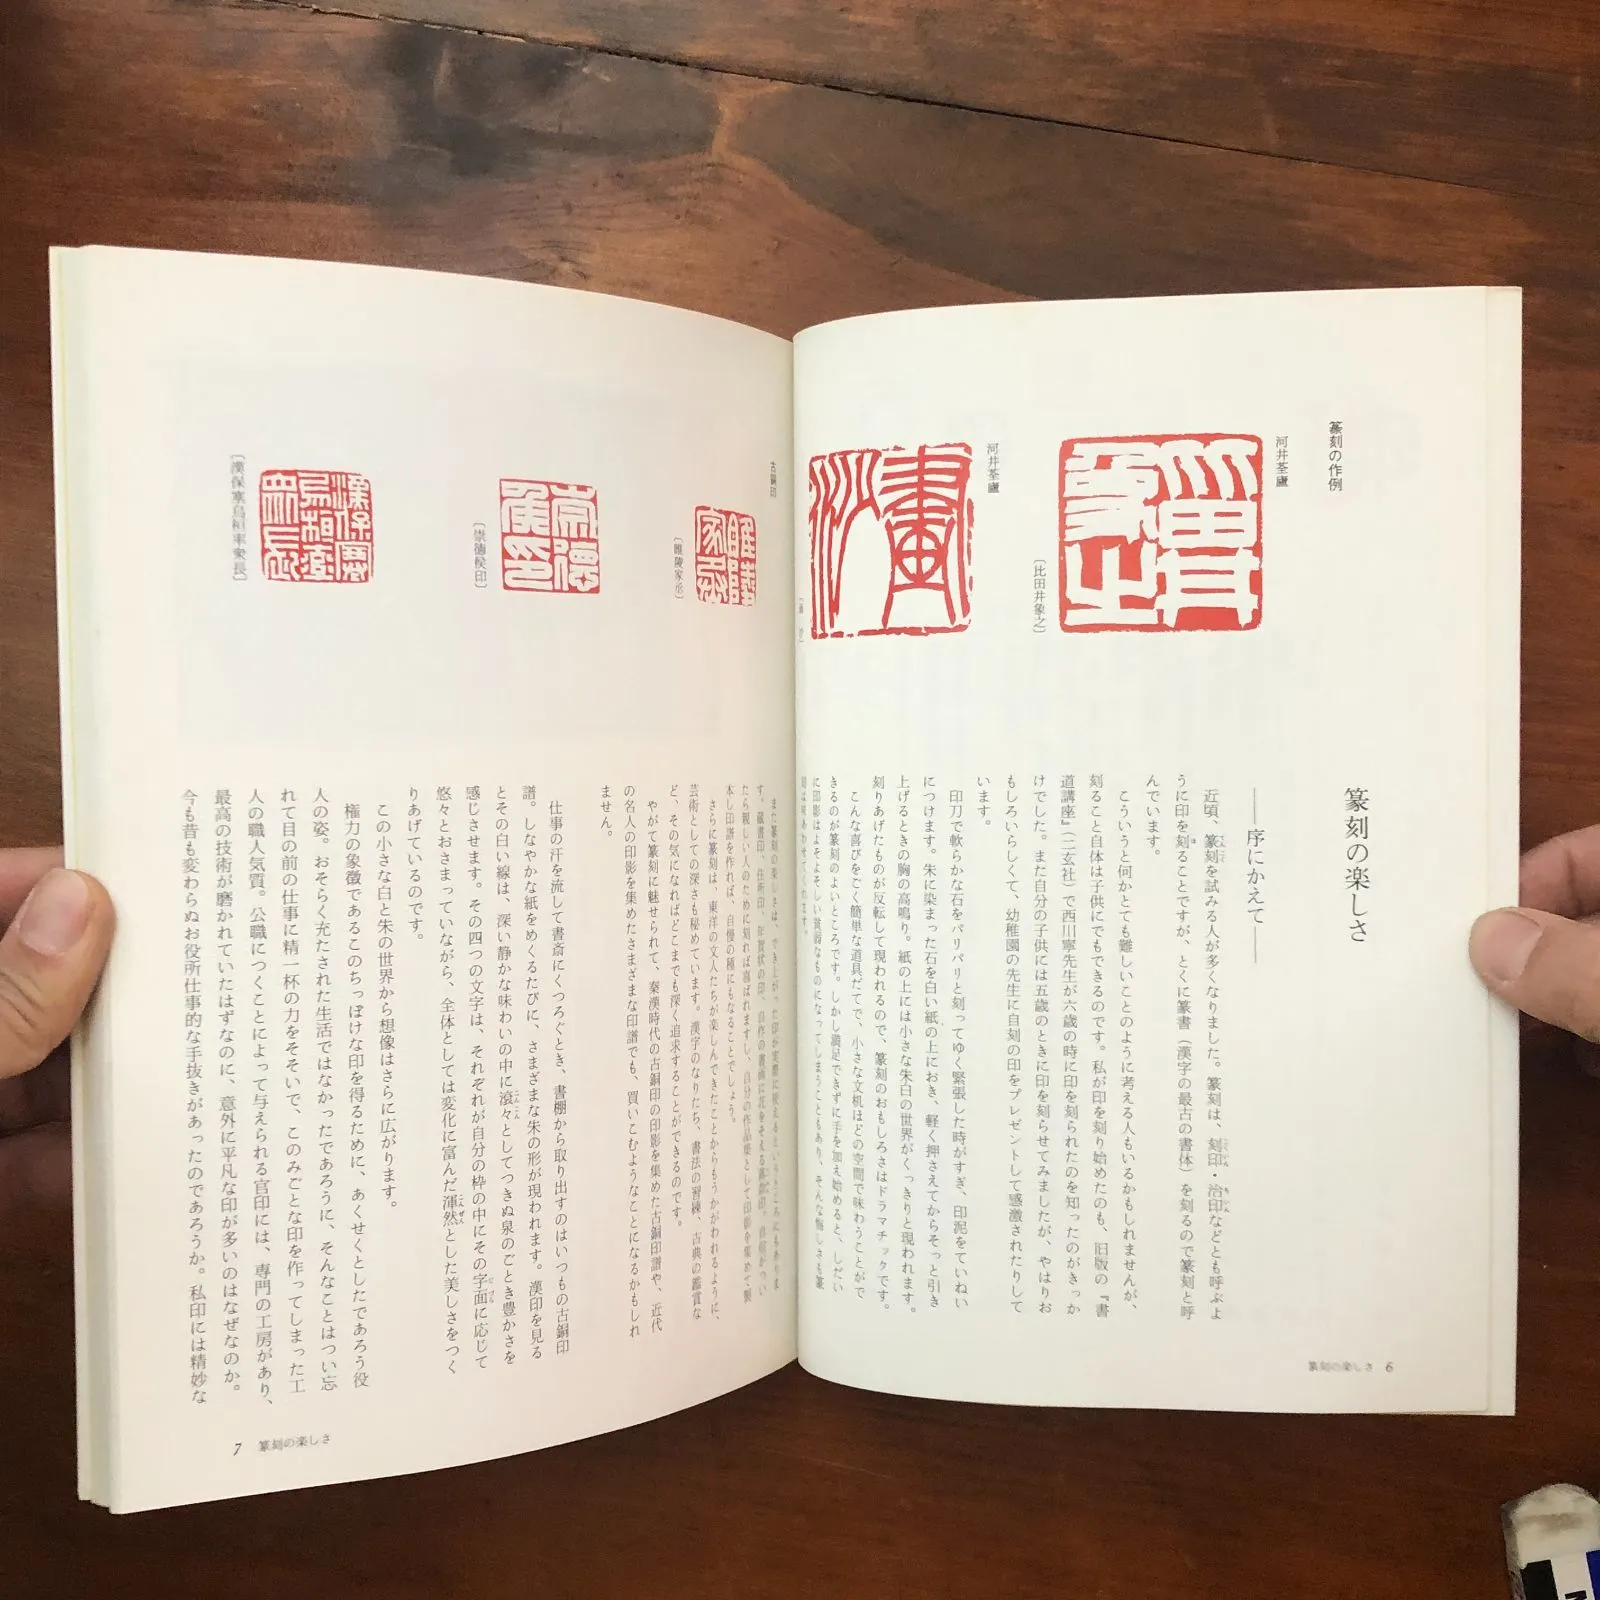 篆刻の作例
河井荃廬
〔比田井象之〕
河井荃廬
篆刻の楽しさ
――序にかえて――
近頃、篆刻を試みる人が多くなりました。篆刻は、刻印・治印などとも呼ぶよ
うに印を刻ることですが、とくに篆書（漢字の最古の書体）を刻るので篆刻と呼
んでいます。
こういうと何かとても難しいことのように考える人もいるかもしれませんが、
刻ること自体は子供にでもできるのです。私が印を刻り始めたのも、旧版の『書
道講座』（二玄社）で西川寧先生が六歳の時に印を刻られたのを知ったのがきっか
けでした。また自分の子供には五歳のときに印を刻らせてみましたが、やはりお
もしろいらしくて、幼稚園の先生に自刻の印をプレゼントして感激されたりして
います。
印刀で軟らかな石をパリパリと刻ってゆく緊張した時がすぎ、印泥をていねい
につけます。朱に染まった石を白い紙の上におき、軽く押さえてからそっと引き
上げるときの胸の高鳴り。紙の上には小さな朱白の世界がくっきりと現われます。
刻りあげたものが反転して現われるので、篆刻のおもしろさはドラマチックです。
こんな喜びをごく簡単な道具だてで、小さな文机ほどの空間で味わうことがで
きるのが篆刻のよいところです。しかし満足できずに手を加え始めると、しだい
に印影はよそよそしい貧弱なものになってしまうこともあり、そんな悔しさも篆
刻は味あわせてくれます。
篆刻の楽しさ 6
古銅印
〔睢陵家丞〕
〔崇徳侯印〕
〔漢保塞烏桓率衆長〕
また篆刻の楽しさは、でき上がった印が実際に使えるというところにもありま
す。蔵書印、住所印、年賀状の印、自作の書画に花をそえる落款印。自信がつい
たら親しい人のために刻れば喜ばれますし、自分の作品集として印影を集めて製
本し印譜を作れば、自慢の種にもなることでしょう。
さらに篆刻は、東洋の文人たちが楽しんできたことからもうかがわれるように、
芸術としての深さも秘めています。漢字のなりたち、書法の習練、古典の鑑賞な
ど、その気になればどこまでも深く追求することができるのです。
やがて篆刻に魅せられて、秦漢時代の古銅印の印影を集めた古銅印譜や、近代
の名人の印影を集めたさまざまな印譜でも、買いこむようなことになるかもしれ
ません。
仕事の汗を流して書斎にくつろぐとき、書棚から取り出すのはいつもの古銅印
譜。しなやかな紙をめくるたびに、さまざまな朱の形が現われます。漢印を見る
とその白い線は、深い静かな味わいの中に滾々としてつきぬ泉のごとき豊かさを
感じさせます。その四つの文字は、それぞれが自分の枠の中にその字面に応じて
悠々とおさまっていながら、全体としては変化に富んだ渾然とした美しさをつく
りあげているのです。
この小さな白と朱の世界から想像はさらに広がります。
権力の象徴であるこのちっぽけな印を得るために、あくせくとしたであろう役
人の姿。おそらく充たされた生活ではなかったであろうに、そんなことはつい忘
れて目の前の仕事に精一杯の力をそそいで、このみごとな印を作ってしまった工
人の職人気質。公職につくことによって与えられる官印には、専門の工房があり、
最高の技術が磨かれていたはずなのに、意外に平凡な印が多いのはなぜなのか。
今も昔も変わらぬお役所仕事的な手抜きがあったのであろうか。私印には精妙な
7 篆刻の楽しさ